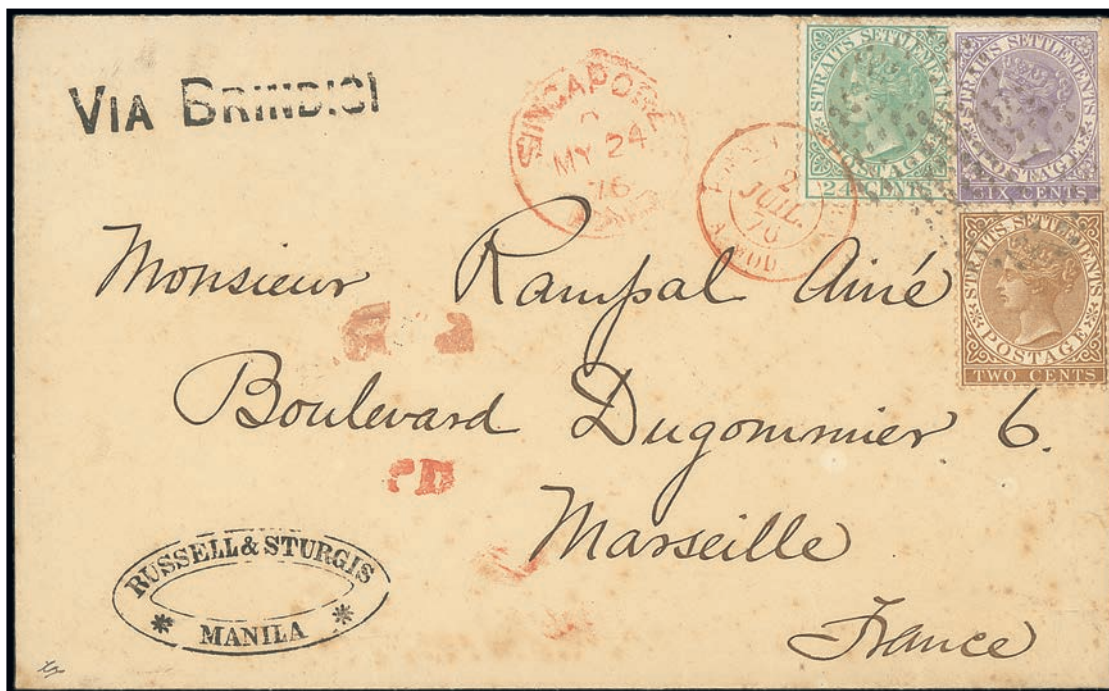 VIA BRINDISI
SINGAPORE
MY 24
76
PAID
2
JUIL
76
STRAITS SETTLEMENTS
POSTAGE
24 CENTS
STRAITS SETTLEMENTS
POSTAGE
SIX CENTS
STRAITS SETTLEMENTS
POSTAGE
TWO CENTS
Monsieur Rampal Ainé
Boulevard Dugommier 6.
PD
Marseille
France
RUSSELL & STURGIS
MANILA